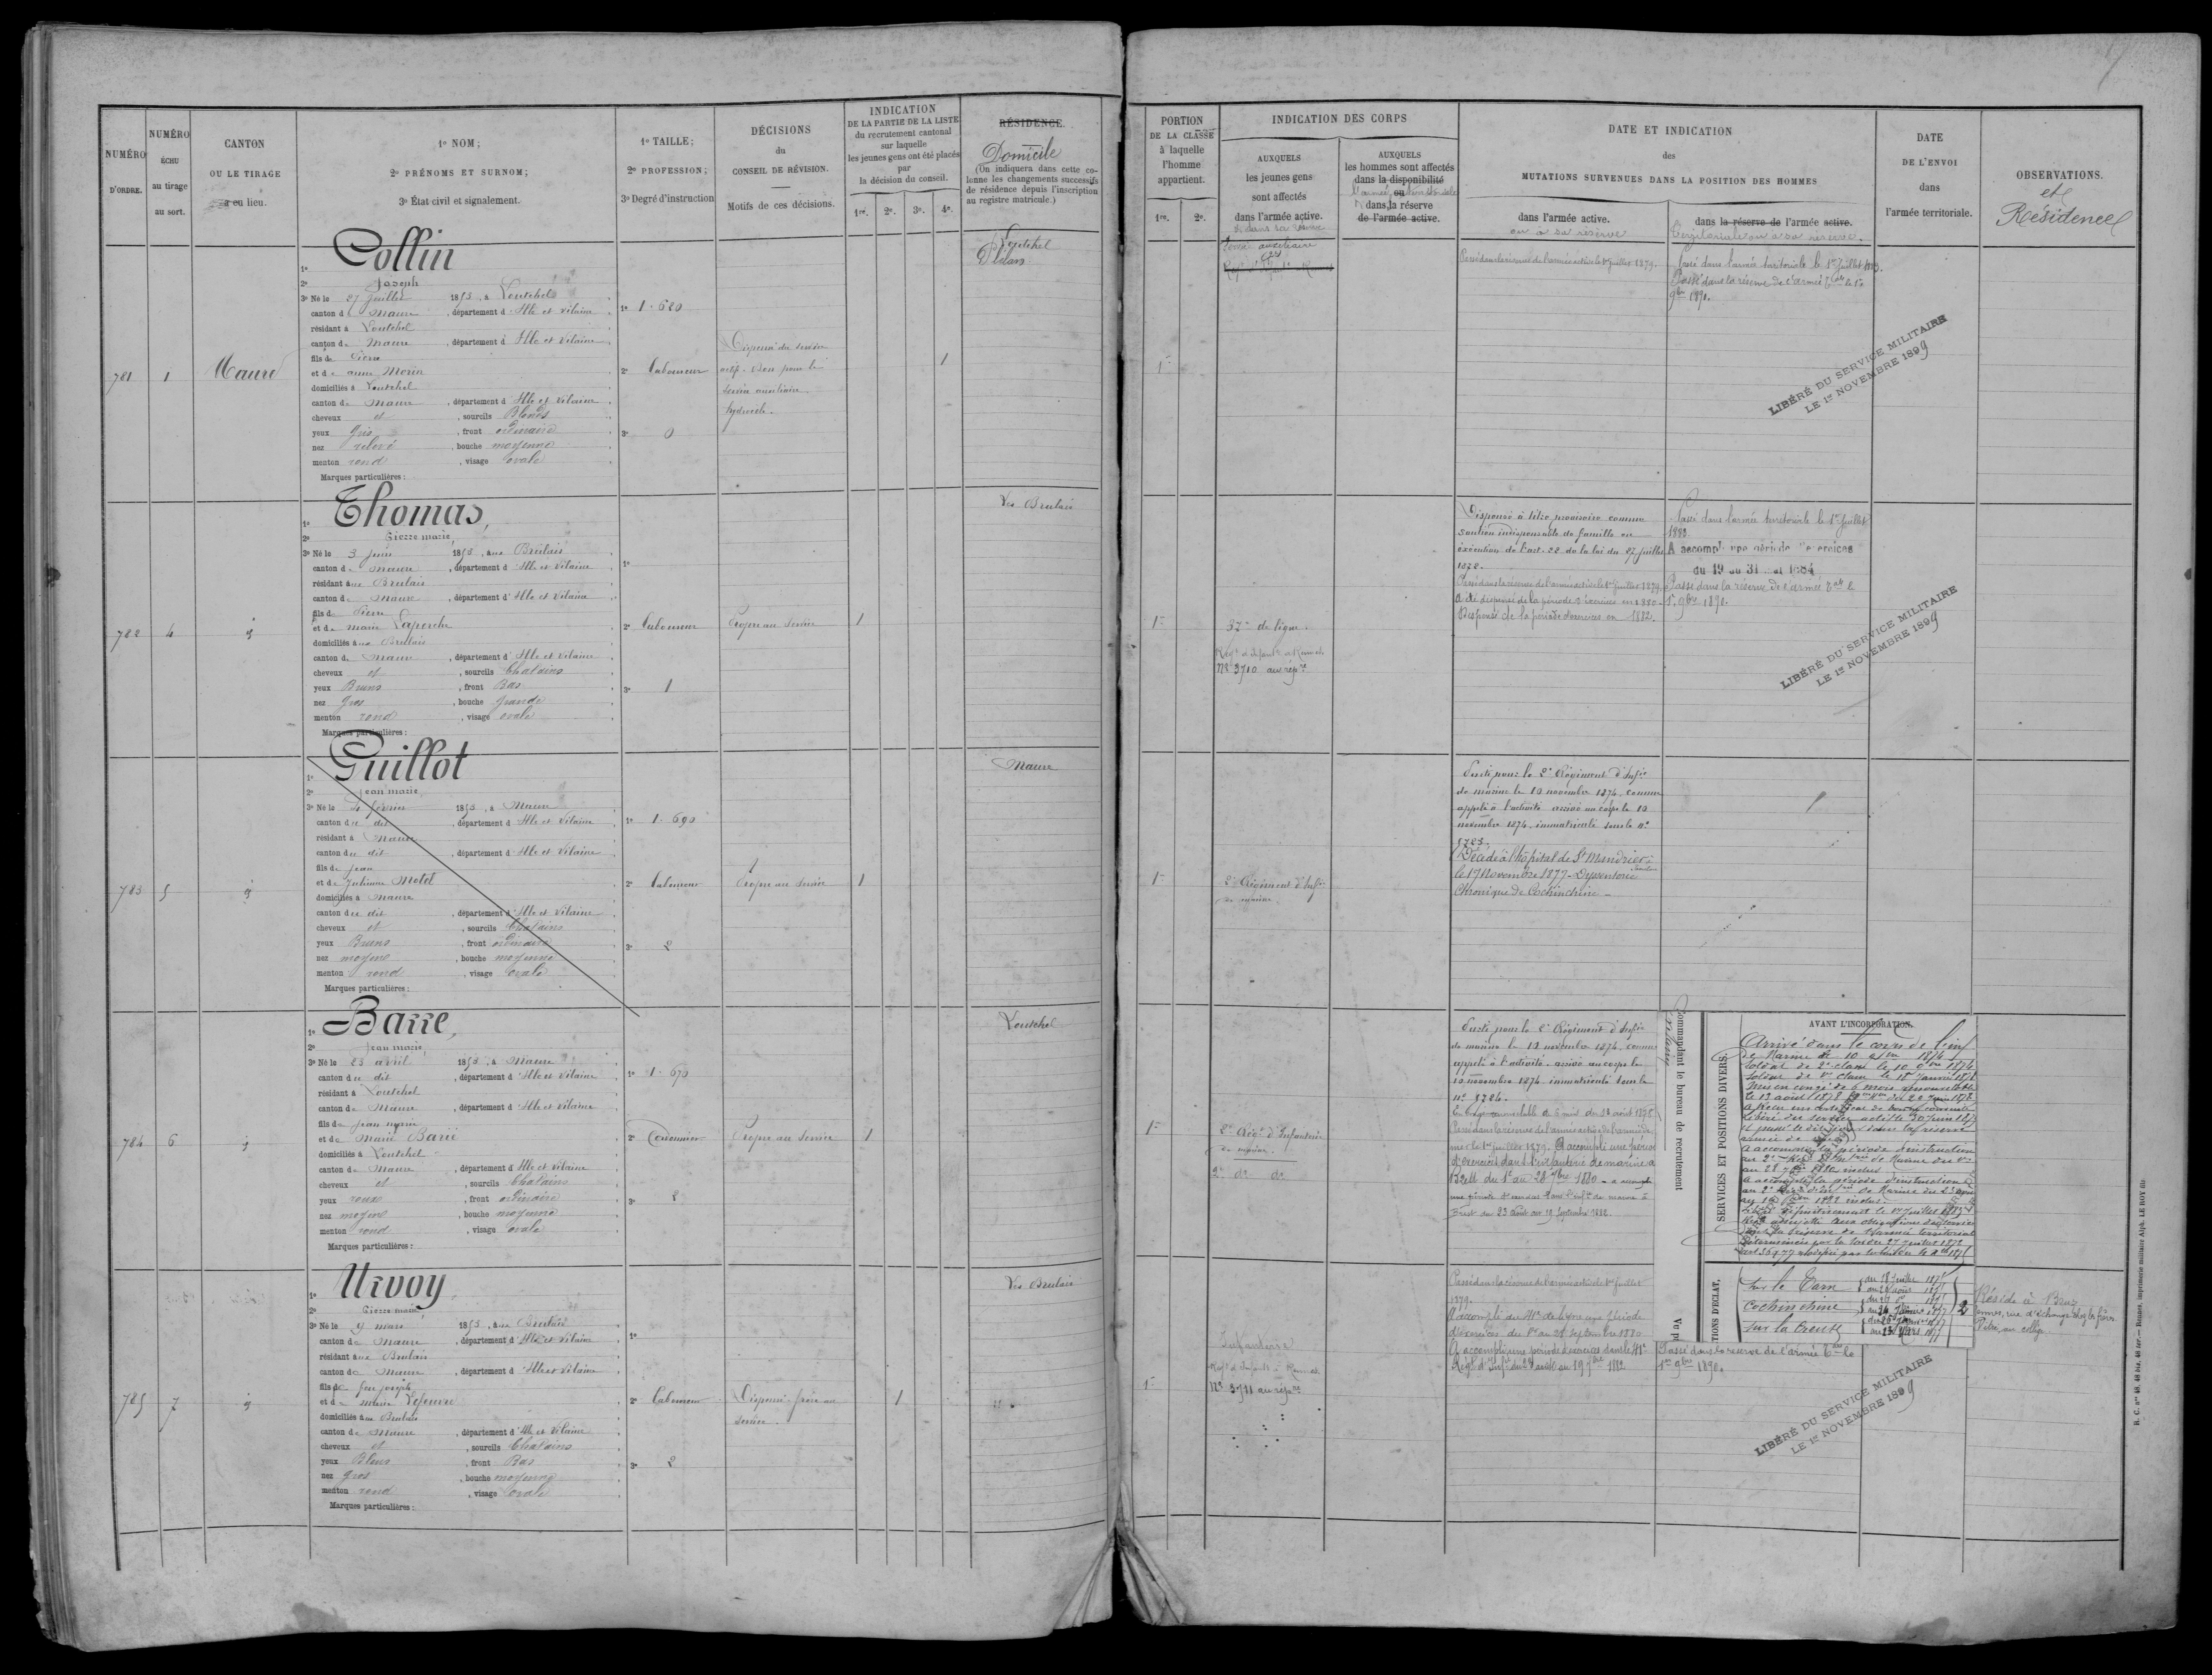 NUMÉRO D'ORDRE.
NUMÉRO ÉCHU au tirage au sort.
CANTON OU LE TIRAGE a eu lieu.
1º NOM;
2º PRÉNOMS ET SURNOM;
3º État civil et signalement.
1º TAILLE;
2º PROFESSION;
3º Degré d'instruction
DÉCISIONS du CONSEIL DE RÉVISION.
Motifs de ces décisions.
INDICATION DE LA PARTIE DE LA LISTE
du recrutement cantonal
sur laquelle
les jeunes gens ont été placés
par
la décision du conseil.
1re. 2e. 3e. 4e.
RÉSIDENCE
Domicile
(On indiquera dans cette co-
lonne les changements successifs
de résidence depuis l'inscription
au registre matricule.)
PORTION
DE LA CLASSE
à laquelle
l'homme
appartient.
1re. 2e.
INDICATION DES CORPS
AUXQUELS
les jeunes gens
sont affectés
dans l'armée active.
AUXQUELS
les hommes sont affectés
dans la disponibilité
ou
dans la réserve
de l'armée active.
DATE ET INDICATION
des
MUTATIONS SURVENUES DANS LA POSITION DES HOMMES
dans l'armée active.
ou à sa réserve
dans la réserve de l'armée active.
territoriale ou à sa réserve.
DATE
DE L'ENVOI
dans
l'armée territoriale.
OBSERVATIONS.
et
Résidence
781
1
Maure
1º Collin
2º Joseph
3º Né le 27 Juillet 1853, à Loutehel
canton de Maure, département d'Ille et Vilaine
résidant à Loutehel
canton de Maure, département d'Ille et Vilaine
fils de Pierre
et de anne Morin
domiciliés à Loutehel
canton de Maure, département d'Ille et Vilaine
cheveux et, sourcils Blonds
yeux Gris, front ordinaire
nez relevé, bouche moyenne
menton rond, visage ovale
Marques particulières :
1º 1. 620
2º laboureur
3º 0
Dispensé du service
actif. Bon pour le
service auxiliaire.
hydrocèle.
1
Loutehel
Plélan
1re
Passé dans la réserve de l'armée active le 1er Juillet 1879.
Passé dans l'armée territoriale le 1er Juillet 1883.
Passé dans la réserve de l'armée tale le 1er
9bre 1890.
LIBÉRÉ DU SERVICE MILITAIRE
LE 1er NOVEMBRE 1899
782
4
id
1º Thomas,
2º Pierre marie
3º Né le 3 Juin 1853, aux Brulais
canton de Maure, département d'Ille et Vilaine
résidant aux Brulais
canton de Maure, département d'Ille et Vilaine
fils de Pierre
et de marie Laperche
domiciliés aux Brulais
canton de Maure, département d'Ille et Vilaine
cheveux et, sourcils Chatains
yeux Bruns, front Bas
nez Gros, bouche Grande
menton rond, visage ovale
Marques particulières :
1º
2º laboureur
3º 1
Propre au service
1
Les Brulais
1re
37e de ligne.
Nº 3710 au répre
Dispensé à titre provisoire comme
soutien indispensable de famille en
exécution de l'art. 22 de la loi du 27 Juillet
1872.
Passé dans la réserve de l'armée active le 1er Juillet 1879.
A été dispensé de la période d'exercices en 1880.
Dispensé de la période d'exercices en 1882.
Passé dans l'armée territoriale le 1er Juillet
1883.
A accompli une période d'exercices
du 19 au 31 mai 1884
Passé dans la réserve de l'armée tale le
1er 9bre 1890.
LIBÉRÉ DU SERVICE MILITAIRE
LE 1er NOVEMBRE 1899
783
5
id
1º Guillot
2º Jean marie
3º Né le 4 février 1853, à Maure
canton du dit, département d'Ille et Vilaine
résidant à Maure
canton du dit, département d'Ille et Vilaine
fils de Jean
et de Julienne Motel
domiciliés à Maure
canton du dit, département d'Ille et Vilaine
cheveux et, sourcils Chatains
yeux Bruns, front ordinaire
nez moyen, bouche moyenne
menton rond, visage ovale
Marques particulières :
1º 1. 690
2º laboureur
3º 2
Propre au service
1
Maure
1re
2e Régiment d'Infie
de marine
Parti pour le 2e Régiment d'Infie
de marine le 10 novembre 1874, comme
appelé à l'activité arrivé au corps le 10
novembre 1874, immatriculé sous le nº
8783.
Décédé à l'hôpital de St Mandrier
le 17 Novembre 1877 - Dyssenterie
Chronique de Cochinchine -
784
6
id
1º Barre,
2º Jean marie
3º Né le 23 avril 1853, à Maure
canton du dit, département d'Ille et Vilaine
résidant à Loutehel
canton de Maure, département d'Ille et Vilaine
fils de Jean marie
et de Marie Barré
domiciliés à Loutehel
canton de Maure, département d'Ille et Vilaine
cheveux et, sourcils Chatains
yeux roux, front ordinaire
nez moyen, bouche moyenne
menton rond, visage ovale
Marques particulières :
1º 1. 670
2º Cordonnier
3º 2
Propre au service
1
Loutehel
1re
2e Régt d'Infanterie
de marine.
2e do do
Parti pour le 2e Régiment d'Infie
de marine le 10 novembre 1874, comme
appelé à l'activité. arrivé au corps le
10 novembre 1874, immatriculé sous le
nº 8784.
Passé dans la réserve de l'armée active de l'armée de
mer le 1er juillet 1879. A accompli une période
d'exercices dans l'infanterie de marine à
Brest du 1er au 28 7bre 1880 - a accompli
une période d'exercices dans l'infie de marine à
Brest du 23 août au 19 Septembre 1882.
Commandant le bureau de recrutement
SERVICES ET POSITIONS DIVERS.
AVANT L'INCORPORATION.
Arrivé dans le corps de l'inf
de Marine le 10 9bre 1874
Soldat de 2e classe le 10 9bre 1874
Soldat de 1re classe le 1er Janvier 1878
Mis en congé de 6 mois renouvelable
le 13 août 1878
A accompli une période d'instruction
au 28 7bre 1880 inclus
Libéré définitivement le 1er Juillet
sur le Tarn
Cochinchine
sur la Creuse
2
Réside à Bruz
785
7
id
1º Urvoy
2º Pierre marie
3º Né le 9 mars 1853, aux Brulais
canton de Maure, département d'Ille et Vilaine
résidant aux Brulais
canton de Maure, département d'Ille et Vilaine
fils de feu Joseph
et de marie Lefeuvre
domiciliés aux Brulais
canton de Maure, département d'Ille et Vilaine
cheveux et, sourcils Chatains
yeux Bleus, front Bas
nez gros, bouche moyenne
menton rond, visage ovale
Marques particulières :
1º
2º laboureur
3º 2
Dispensé frère au
service.
1
Les Brulais
1re
Infanterie
Nº 3711 au répre
Passé dans la réserve de l'armée active le 1er Juillet
1879.
A accompli au 41e de ligne une période
d'exercices du 1er au 28 Septembre 1880
A accompli une période d'exercices dans le 41e
Régt d'Infie du 23 août au 19 7bre 1882
Passé dans la réserve de l'armée tale le
1er 9bre 1890.
LIBÉRÉ DU SERVICE MILITAIRE
LE 1er NOVEMBRE 1899